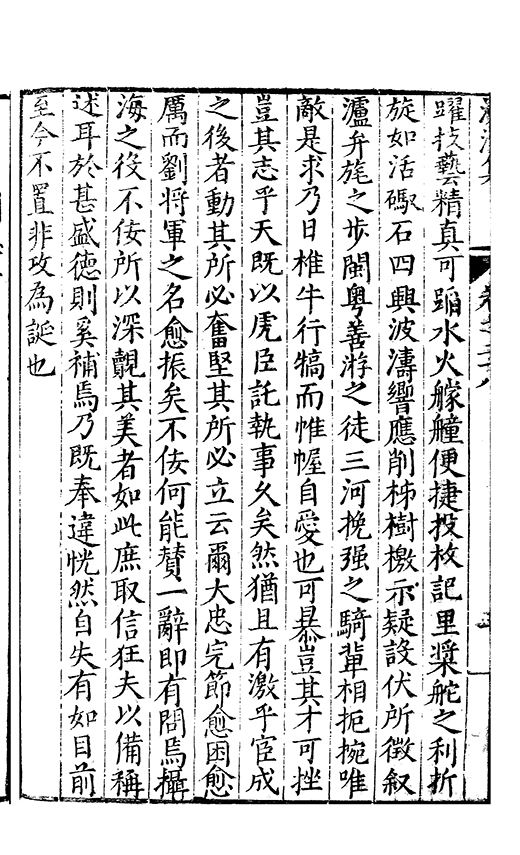 躍技藝精真可蹈水火艨艟便捷投枚記里槳舵之利折
旋如活礮石四興波濤響應削柹樹檄示疑設伏所徵叙
瀘弁旄之步閩粵善游之徒三河挽强之騎輩相扼捥唯
敵是求乃日椎牛行犒而惟幄自愛也可暴豈其才可挫
豈其志乎天既以虎臣託執事久矣然猶且有激乎宦成
之後者動其所必奮堅其所必立云爾大忠完節愈困愈
厲而劉將軍之名愈振矣不佞何能贊一辭即有問焉攝
海之役不佞所以深覿其美者如此庶取信狂夫以備稱
述耳於甚盛德則奚補焉乃既奉違恍然自失有如目前
至今不置非攻為誕也